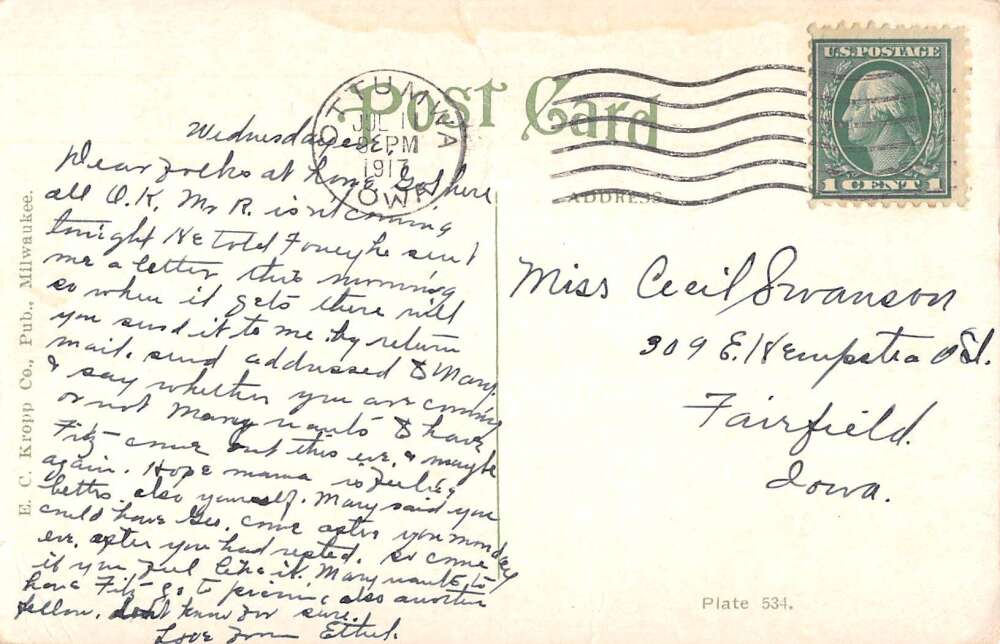 Post Card
U.S. POSTAGE
1 CENT 1
OTTUMWA
JUL 11
8 PM
1917
IOWA
ADDRESS
E. C. Kropp Co., Pub., Milwaukee.
Wednesday eve.
Dear Folks at home Got here
all O.K. Mr R. isn't coming
tonight He told he sent
me a letter this morning
so when it gets there will
you send it to me by return
mail. send addressed to Mary.
& say whether you are coming
or not Mary wants to have
Fitz come out this eve. & maybe
again. Hope mama is feeling
better. also yourself. Mary said you
could have Geo. come after you monday
eve. after you had rested. so come
if you feel like it. Mary wants to
have Fitz go to picnic, also another
fellow. don't know for sure.
Love from Ethel.
Miss Cecil Swanson
309 E. Kempstead St.
Fairfield.
Iowa.
Plate 534.